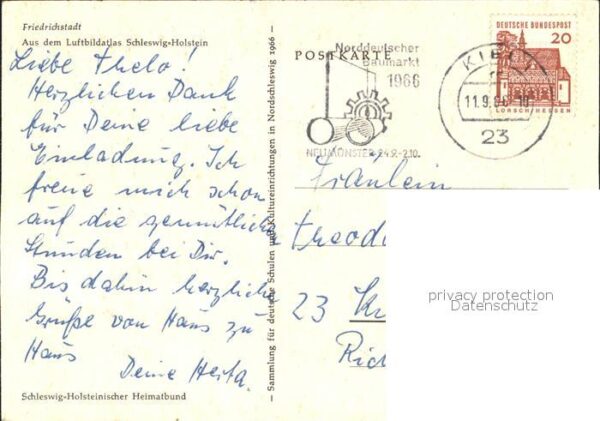 Friedrichstadt
Aus dem Luftbildatlas Schleswig-Holstein
Liebe Thelo!
Herzlichen Dank
für Deine liebe
Einladung. Ich
freue mich schon
auf die gemütliche
Stunden bei Dir.
Bis dahin herzliche
Grüße von Haus zu
Haus
Deine Herta.
Schleswig-Holsteinischer Heimatbund
— Sammlung für deutsche Schulen und Kultureinrichtungen in Nordschleswig 1966 —
POSTKARTE
Norddeutscher
Baumarkt
1966
NEUMÜNSTER 24.9.-2.10.
KIEL
11.9.66
23
DEUTSCHE BUNDESPOST
20
LORSCH/HESSEN
Fräulein
Theod
23 K
Ric
privacy protection
Datenschutz